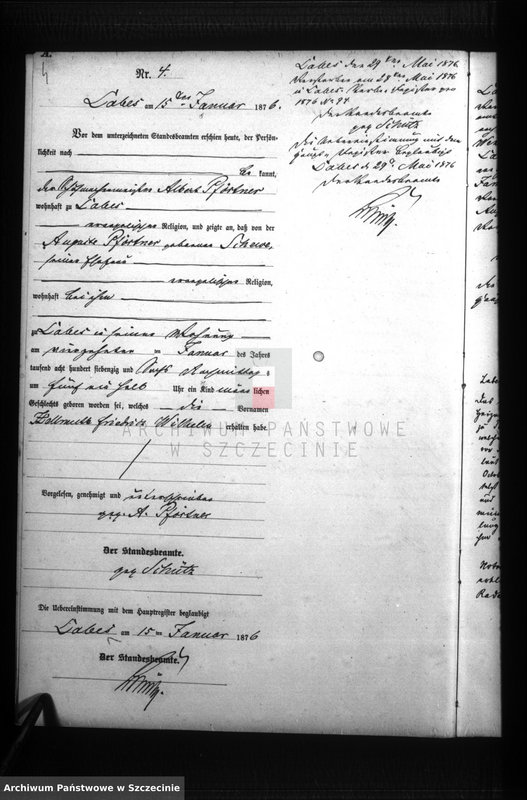 A.
Nr. 4.
Labes am 15ten Januar 1876.
Vor dem unterzeichneten Standesbeamten erschien heute, der Persön-
lichkeit nach
be kannt,
der Albert Pförtner
wohnhaft zu Labes
evangelischer Religion, und zeigte an, daß von der
Auguste Pförtner geborenen Schewe,
seiner Ehefrau
evangelischer Religion,
wohnhaft bei ihm
zu Labes in seiner Wohnung
am vierzehnten ten Januar des Jahres
tausend acht hundert siebenzig und sechs Nachmittags
um fünf ein halb Uhr ein Kind männ lichen
Geschlechts geboren worden sei, welches die Vornamen
Hellmuth Friedrich Wilhelm erhalten habe.
Vorgelesen, genehmigt und unterschrieben
gez. A. Pförtner
Der Standesbeamte.
gez Schütz
Die Uebereinstimmung mit dem Hauptregister beglaubigt
Labes am 15 ten Januar 1876
Der Standesbeamte.
Schütz.
Labes den 29ten Mai 1876.
Verstorben am 28ten Mai 1876
zu Labes Register pro
1876 No 94.
Der Standesbeamte
gez Schütz
Die Uebereinstimmung mit dem
Haupt-Register beglaubigt
Labes d 29t Mai 1876
Der Standesbeamte
Schütz.
ARCHIWUM PAŃSTWOWE
W SZCZECINIE
Archiwum Państwowe w Szczecinie